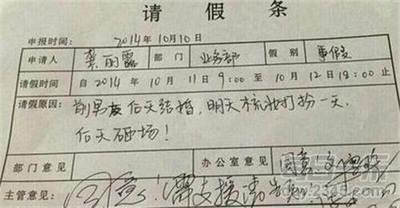 请 假 条
申报时间: 2014年10月10日
申请人 龚丽露 部门 业务部 假别 事假
请假时间 自 2014年 10月 11日 9:00 至 10月 12日 18:00 止
请假原因: 前男友后天结婚,明天梳妆打扮一天,
后天砸场!
部门意见 办公室意见 同意
主管意见: 同意!需支援请告
www.2345.com